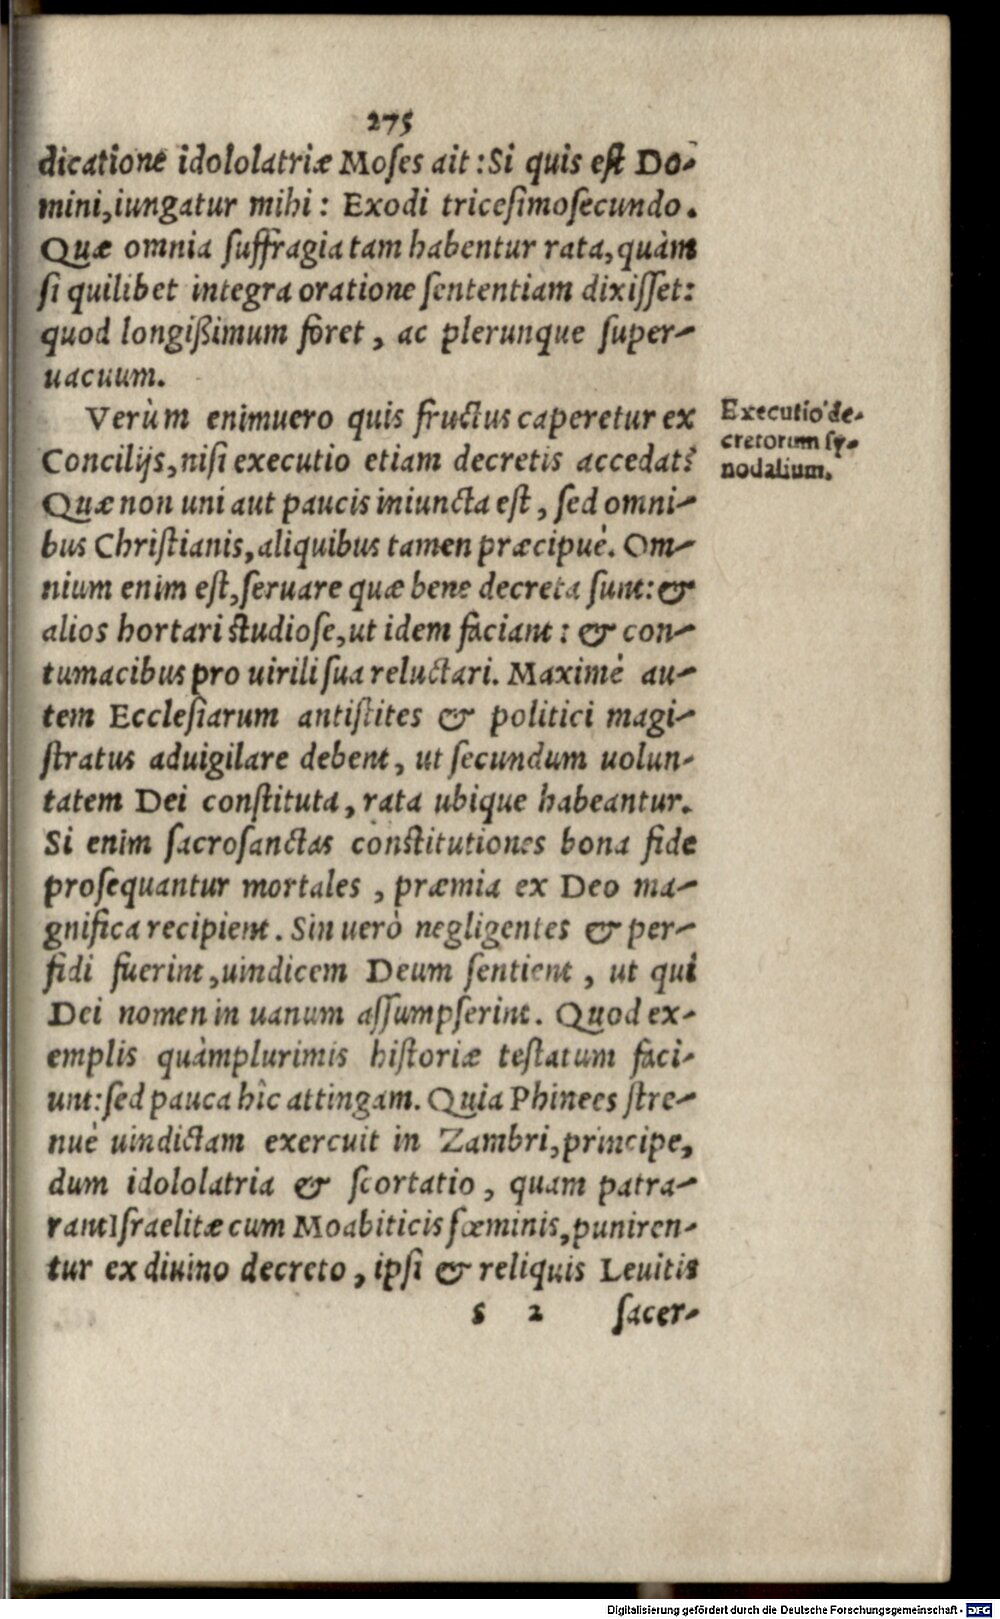 275
dicatione idololatriæ Moses ait: Si quis est Do-
mini, iungatur mihi: Exodi tricesimosecundo.
Quæ omnia suffragia tam habentur rata, quàm
si quilibet integra oratione sententiam dixisset:
quod longißimum foret, ac plerunque super-
uacuum.
Verùm enimuero quis fructus caperetur ex
Concilijs, nisi executio etiam decretis accedat?
Quæ non uni aut paucis iniuncta est, sed omni-
bus Christianis, aliquibus tamen præcipuè. Om-
nium enim est, seruare quæ bene decreta sunt: &
alios hortari studiose, ut idem faciant: & con-
tumacibus pro uirili sua reluctari. Maximè au-
tem Ecclesiarum antistites & politici magi-
stratus aduigilare debent, ut secundum uolun-
tatem Dei constituta, rata ubique habeantur.
Si enim sacrosanctas constitutiones bona fide
prosequantur mortales, præmia ex Deo ma-
gnifica recipient. Sin uerò negligentes & per-
fidi fuerint, uindicem Deum sentient, ut qui
Dei nomen in uanum assumpserint. Quod ex-
emplis quàmplurimis historiæ testatum faci-
unt: sed pauca hîc attingam. Quia Phinees stre-
nuè uindictam exercuit in Zambri, principe,
dum idololatria & scortatio, quam patra-
rant Israelitæ cum Moabiticis fœminis, puniren-
tur ex diuino decreto, ipsi & reliquis Leuitis
s 2 sacer-
Executio de-
cretorum sy-
nodalium.
Digitalisierung gefördert durch die Deutsche Forschungsgemeinschaft - DFG